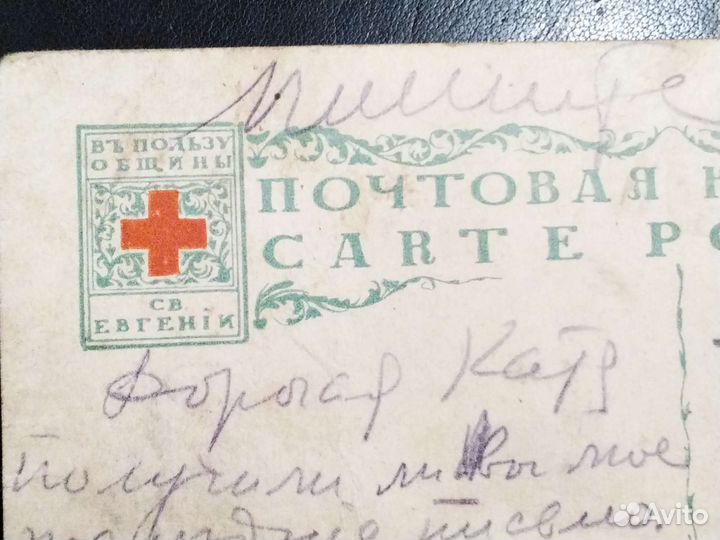 Пишите
ВЪ ПОЛЬЗУ
ОБЩИНЫ
СВ
ЕВГЕНІИ
ПОЧТОВАЯ К
CARTE PO
Дорогая Катя
Получили ли Вы мое
письмо.
Avito